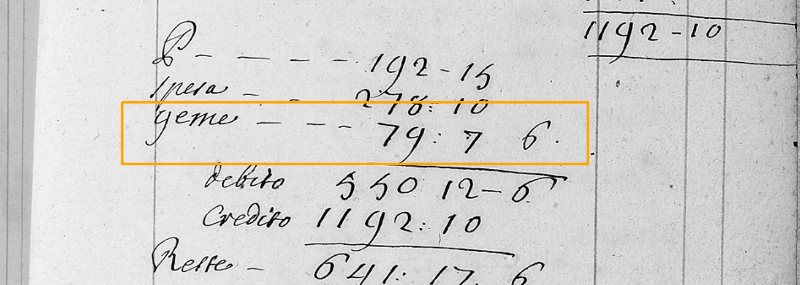 1192-10
P - - - - 192-15
spesa - - 278: 10
geme - - - 79: 7 6.
debito 550 12-6
Credito 1192: 10
Reste - 641: 17. 6